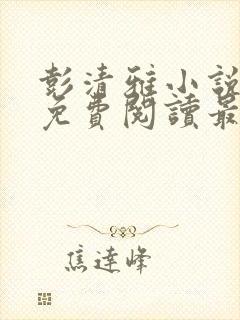 彭清雅小說
免費閱讀最
焦達峰